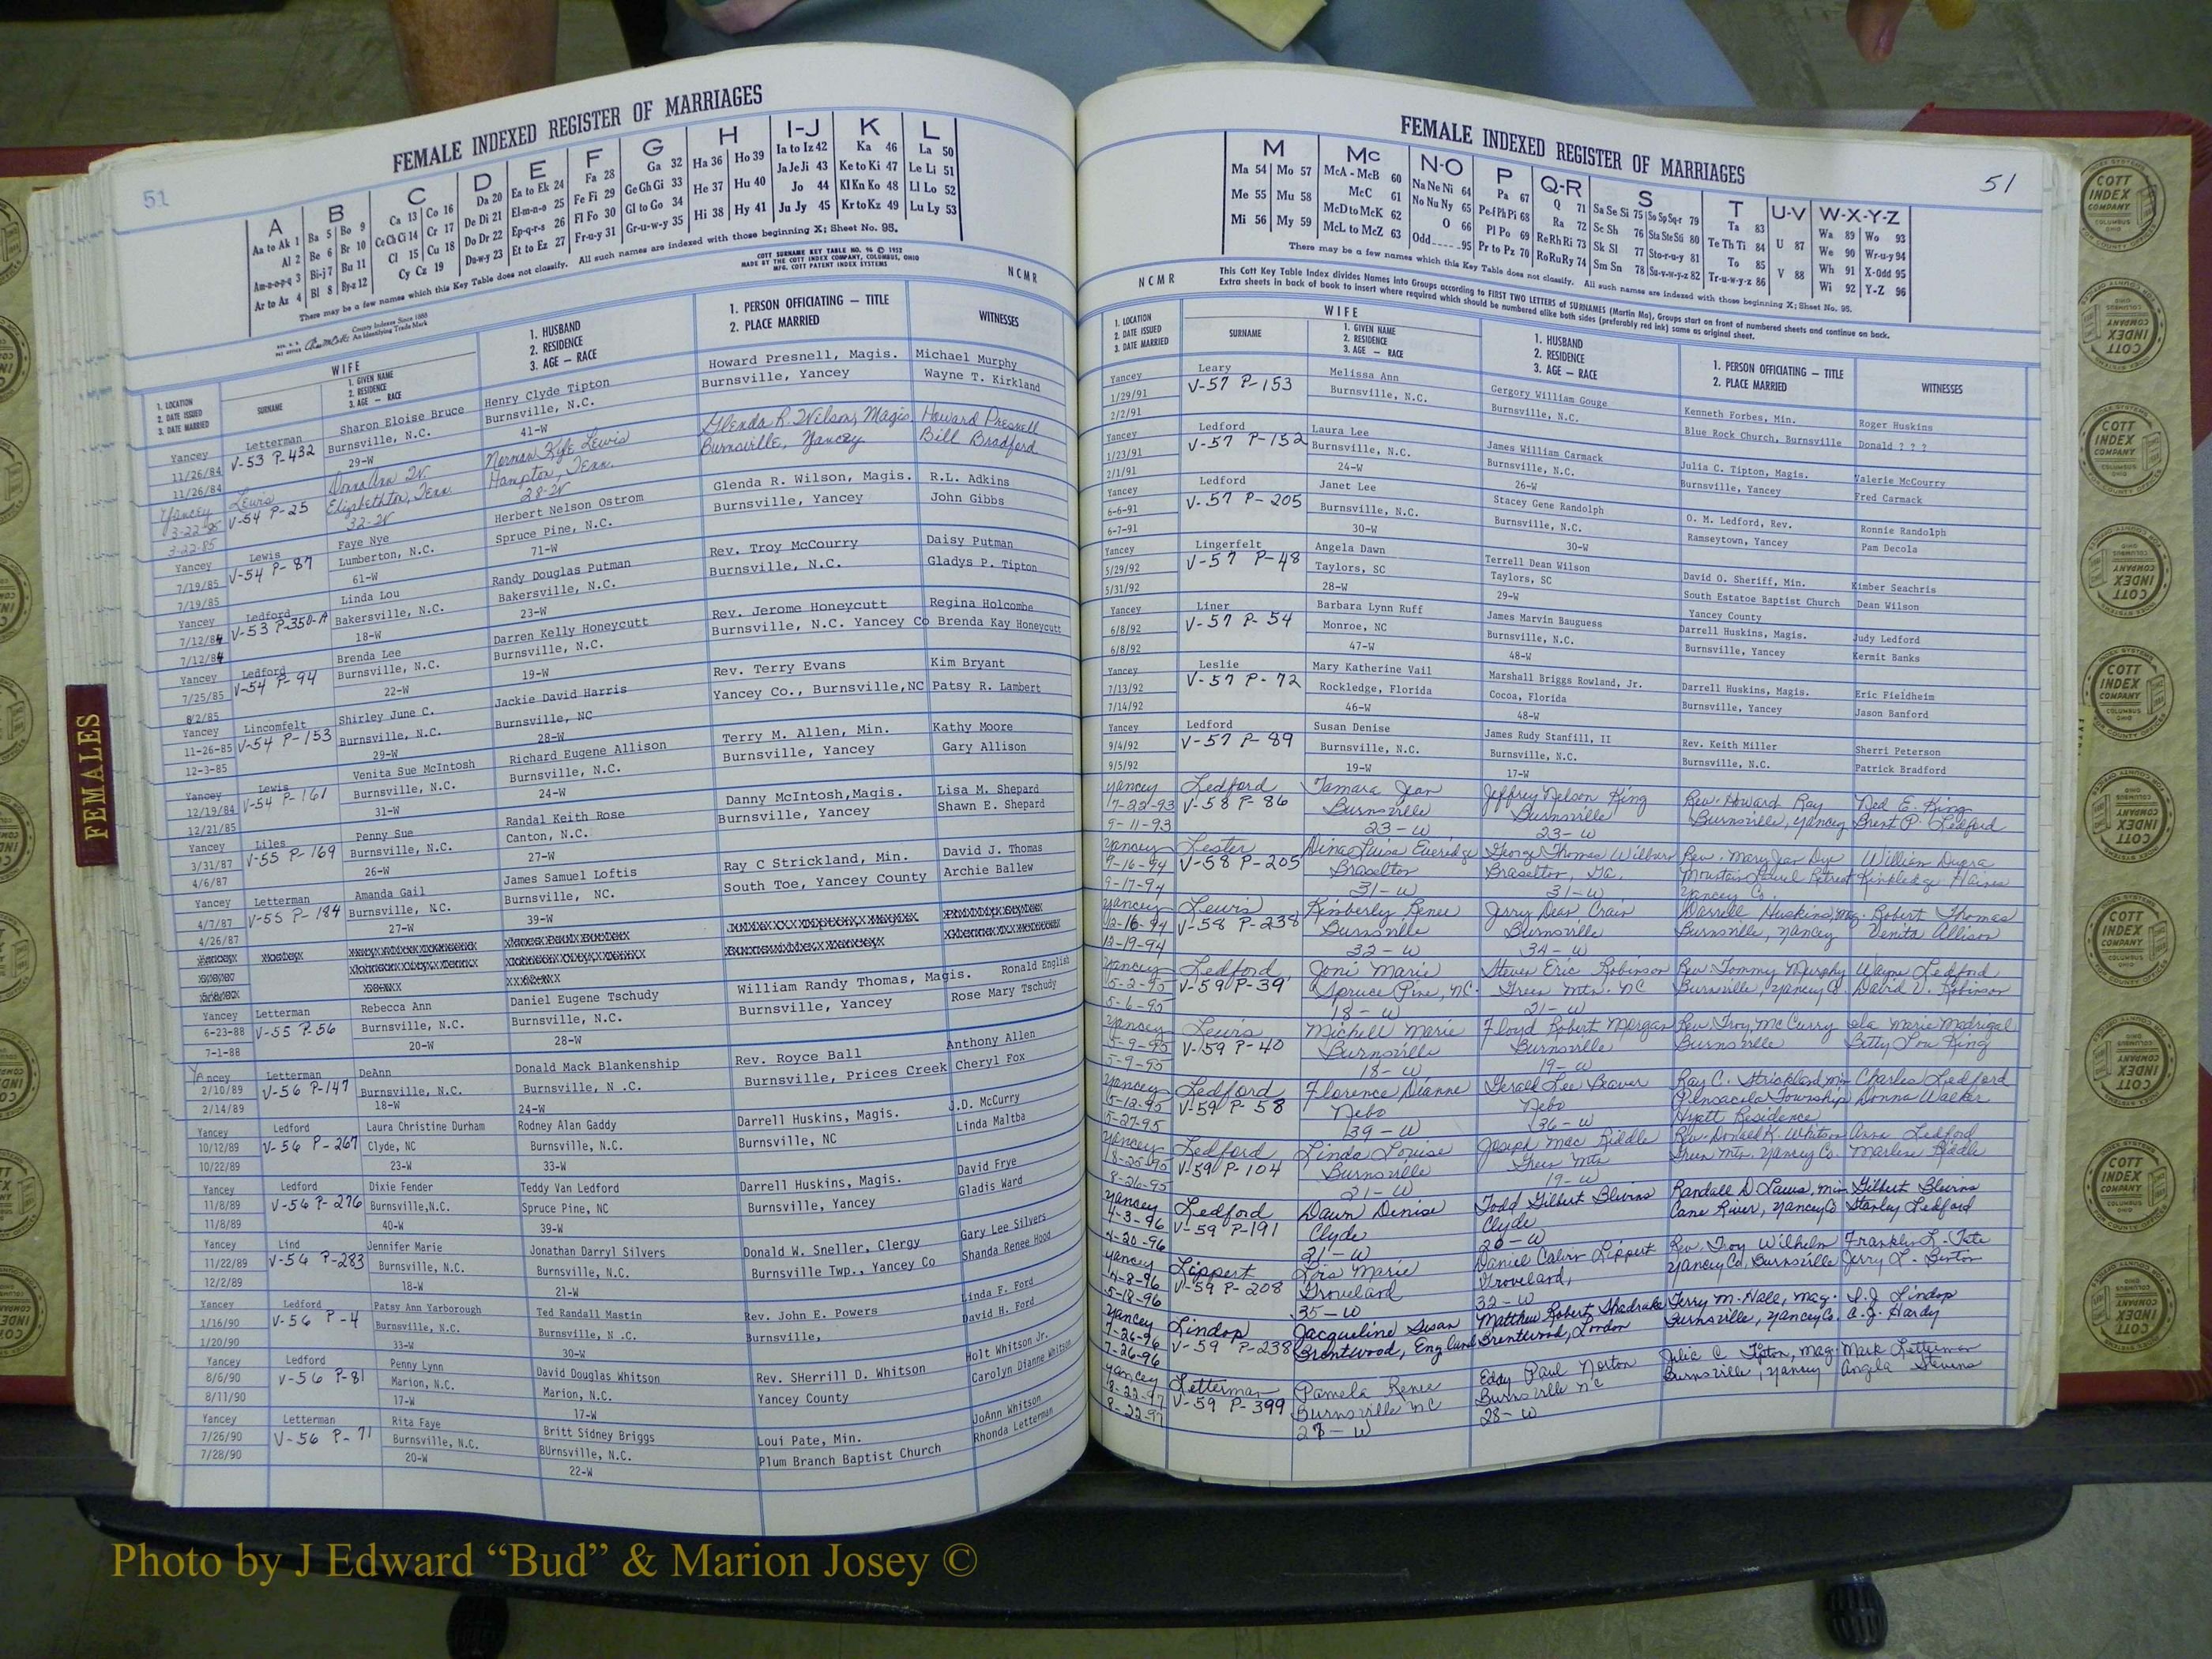 FEMALE INDEXED REGISTER OF MARRIAGES
51
A B C D E F G H I-J K L
Aa to Ak 1 Ba 5 Bo 9 Ca 13 Co 16 Da 20 Ea to Ek 24 Fa 28 Ga 32 Ha 36 Ho 39 Ia to Iz 42 Ka 46 La 50
Al 2 Be 6 Br 10 Ce Ch Ci 14 Cr 17 De Di 21 El-m-n-o 25 Fe Fi 29 Ge Gh Gi 33 He 37 Hu 40 Ja Je Ji 43 Ke to Ki 47 Le Li 51
Am-n-o-p-q 3 Bi-j 7 Bu 11 Cl 15 Cu 18 Do Dr 22 Ep-q-r-s 26 Fl Fo 30 Gl to Go 34 Hi 38 Hy 41 Jo 44 Kl Kn Ko 48 Ll Lo 52
Ar to Az 4 Bl 8 By-z 12 Cy Cz 19 Du-w-y 23 Et to Ez 27 Fr-u-y 31 Gr-u-w-y 35 Ju Jy 45 Kr to Kz 49 Lu Ly 53
There may be a few names which this Key Table does not classify. All such names are indexed with those beginning X; Sheet No. 95.
COTT SURNAME KEY TABLE NO. 96 © 1952
MADE BY THE COTT INDEX COMPANY, COLUMBUS, OHIO
MFG. COTT PATENT INDEX SYSTEMS
NCMR
County Indexes Since 1888
An Identifying Trade Mark
1. LOCATION
2. DATE ISSUED
3. DATE MARRIED
WIFE
SURNAME
1. GIVEN NAME
2. RESIDENCE
3. AGE — RACE
1. HUSBAND
2. RESIDENCE
3. AGE — RACE
1. PERSON OFFICIATING — TITLE
2. PLACE MARRIED
WITNESSES
Yancey Letterman Sharon Eloise Bruce Henry Clyde Tipton Howard Presnell, Magis. Michael Murphy
11/26/84 V-53 P-432 Burnsville, N.C. Burnsville, N.C. Burnsville, Yancey Wayne T. Kirkland
11/26/84 29-W 41-W
Yancey Lewis Donna Ann W. Norman Kyle Lewis Glenda R. Wilson, Magis. Howard Presnell
3-22-85 V-54 P-25 Elizabethton, Tenn. Hampton, Tenn. Burnsville, Yancey Bill Bradford
3-22-85 32-W 28-W
Yancey Lewis Faye Nye Herbert Nelson Ostrom Glenda R. Wilson, Magis. R.L. Adkins
7/19/85 V-54 P-87 Lumberton, N.C. Spruce Pine, N.C. Burnsville, Yancey John Gibbs
7/19/85 61-W 71-W
Yancey Ledford Linda Lou Randy Douglas Putman Rev. Troy McCourry Daisy Putman
7/12/84 V-53 P-350-A Bakersville, N.C. Bakersville, N.C. Burnsville, N.C. Gladys P. Tipton
7/12/84 18-W 23-W
Yancey Ledford Brenda Lee Darren Kelly Honeycutt Rev. Jerome Honeycutt Regina Holcombe
7/25/85 V-54 P-94 Burnsville, N.C. Burnsville, N.C. Burnsville, N.C. Yancey Co Brenda Kay Honeycutt
8/2/85 22-W 19-W
Yancey Lincomfelt Shirley June C. Jackie David Harris Rev. Terry Evans Kim Bryant
11-26-85 V-54 P-153 Burnsville, N.C. Burnsville, NC Yancey Co., Burnsville,NC Patsy R. Lambert
12-3-85 29-W 28-W
Yancey Lewis Venita Sue McIntosh Richard Eugene Allison Terry M. Allen, Min. Kathy Moore
12/19/84 V-54 P-161 Burnsville, N.C. Burnsville, N.C. Burnsville, Yancey Gary Allison
12/21/85 31-W 24-W
Yancey Liles Penny Sue Randal Keith Rose Danny McIntosh,Magis. Lisa M. Shepard
3/31/87 V-55 P-169 Burnsville, N.C. Canton, N.C. Burnsville, Yancey Shawn E. Shepard
4/6/87 26-W 27-W
Yancey Letterman Amanda Gail James Samuel Loftis Ray C Strickland, Min. David J. Thomas
4/7/87 V-55 P-184 Burnsville, N.C. Burnsville, NC. South Toe, Yancey County Archie Ballew
4/26/87 27-W 39-W
Yancey Letterman Rebecca Ann Daniel Eugene Tschudy William Randy Thomas, Magis. Ronald English
6-23-88 V-55 P-56 Burnsville, N.C. Burnsville, N.C. Burnsville, Yancey Rose Mary Tschudy
7-1-88 20-W 28-W
Yancey Letterman DeAnn Donald Mack Blankenship Rev. Royce Ball Anthony Allen
2/10/89 V-56 P-147 Burnsville, N.C. Burnsville, N .C. Burnsville, Prices Creek Cheryl Fox
2/14/89 18-W 24-W
Yancey Ledford Laura Christine Durham Rodney Alan Gaddy Darrell Huskins, Magis. J.D. McCurry
10/12/89 V-56 P-267 Clyde, NC Burnsville, N.C. Burnsville, NC Linda Maltba
10/22/89 23-W 33-W
Yancey Ledford Dixie Fender Teddy Van Ledford Darrell Huskins, Magis. David Frye
11/8/89 V-56 P-276 Burnsville,N.C. Spruce Pine, NC Burnsville, Yancey Gladis Ward
11/8/89 40-W 39-W
Yancey Lind Jennifer Marie Jonathan Darryl Silvers Donald W. Sneller, Clergy Gary Lee Silvers
11/22/89 V-56 P-283 Burnsville, N.C. Burnsville, N.C. Burnsville Twp., Yancey Co Shanda Renee Hood
12/2/89 18-W 21-W
Yancey Ledford Patsy Ann Yarborough Ted Randall Mastin Rev. John E. Powers Linda F. Ford
1/16/90 V-56 P-4 Burnsville, N.C. Burnsville, N .C. Burnsville, David H. Ford
1/20/90 33-W 30-W
Yancey Ledford Penny Lynn David Douglas Whitson Rev. SHerrill D. Whitson Holt Whitson Jr.
8/6/90 V-56 P-81 Marion, N.C. Marion, N.C. Yancey County Carolyn Dianne Whitson
8/11/90 17-W 17-W
Yancey Letterman Rita Faye Britt Sidney Briggs Loui Pate, Min. JoAnn Whitson
7/26/90 V-56 P-71 Burnsville, N.C. BUrnsville, N.C. Plum Branch Baptist Church Rhonda Letterman
7/28/90 20-W 22-W
FEMALES
FEMALE INDEXED REGISTER OF MARRIAGES
51
M Mc N-O P Q-R S T U-V W-X-Y-Z
Ma 54 Mo 57 McA - McB 60 Na Ne Ni 64 Pa 67 Q 71 Sa Se Si 75 So Sp Sq-r 79 Ta 83 Wa 89 Wo 93
Me 55 Mu 58 McC 61 No Nu Ny 65 Pe-f Ph Pi 68 Ra 72 Sc Sh 76 Sta Ste Sti 80 Te Th Ti 84 U 87 We 90 Wr-u-y 94
Mi 56 My 59 McD to McK 62 O 66 Pl Po 69 Re Rh Ri 73 Sk Sl 77 Sto-r-u-y 81 To 85 V 88 Wh 91 X-Odd 95
McL to McZ 63 Odd 95 Pr to Pz 70 Ro Ru Ry 74 Sm Sn 78 Su-v-w-y-z 82 Tr-u-w-y-z 86 Wi 92 Y-Z 96
There may be a few names which this Key Table does not classify. All such names are indexed with those beginning X; Sheet No. 95.
NCMR
This Cott Key Table Index divides Names into Groups according to FIRST TWO LETTERS of SURNAMES (Martin Ma), Groups start on front of numbered sheets and continue on back.
Extra sheets in back of book to insert where required which should be numbered alike both sides (preferably red ink) same as original sheet.
1. LOCATION
2. DATE ISSUED
3. DATE MARRIED
WIFE
SURNAME
1. GIVEN NAME
2. RESIDENCE
3. AGE — RACE
1. HUSBAND
2. RESIDENCE
3. AGE — RACE
1. PERSON OFFICIATING — TITLE
2. PLACE MARRIED
WITNESSES
Yancey Leary Melissa Ann Gergory William Gouge Kenneth Forbes, Min. Roger Huskins
1/29/91 V-57 P-153 Burnsville, N.C. Burnsville, N.C. Blue Rock Church, Burnsville Donald ? ? ?
2/2/91
Yancey Ledford Laura Lee James William Carmack Julia C. Tipton, Magis. Valerie McCourry
1/23/91 V-57 P-152 Burnsville, N.C. Burnsville, N.C. Burnsville, Yancey Fred Carmack
2/1/91 24-W 26-W
Yancey Ledford Janet Lee Stacey Gene Randolph O. M. Ledford, Rev. Ronnie Randolph
6-6-91 V-57 P-205 Burnsville, N.C. Burnsville, N.C. Ramseytown, Yancey Pam Decola
6-7-91 30-W 30-W
Yancey Lingerfelt Angela Dawn Terrell Dean Wilson David O. Sheriff, Min. Kimber Seachris
5/29/92 V-57 P-48 Taylors, SC Taylors, SC South Estatoe Baptist Church Dean Wilson
5/31/92 28-W 29-W Yancey County
Yancey Liner Barbara Lynn Ruff James Marvin Bauguess Darrell Huskins, Magis. Judy Ledford
6/8/92 V-57 P-54 Monroe, NC Burnsville, N.C. Burnsville, Yancey Kermit Banks
6/8/92 47-W 48-W
Yancey Leslie Mary Katherine Vail Marshall Briggs Rowland, Jr. Darrell Huskins, Magis. Eric Fieldheim
7/13/92 V-57 P-72 Rockledge, Florida Cocoa, Florida Burnsville, Yancey Jason Banford
7/14/92 46-W 48-W
Yancey Ledford Susan Denise James Rudy Stanfill, II Rev. Keith Miller Sherri Peterson
9/4/92 V-57 P-89 Burnsville, N.C. Burnsville, N.C. Burnsville, N.C. Patrick Bradford
9/5/92 19-W 17-W
Yancey Ledford Tamara Jean Jeffrey Nelson King Rev. Howard Ray Ned E. King
7-22-93 V-58 P-86 Burnsville Burnsville Burnsville, Yancey Brent P. Ledford
9-11-93 23-W 23-W
Yancey Lester Dina Luisa George Thomas Wilburn Rev. Mary Jan Dye William Dupra
9-16-94 V-58 P-205 Braselton Braselton, Ga. Mountain Laurel Retreat
9-17-94 31-W 31-W Yancey Co.
Yancey Lewis Kimberly Renee Jerry Dean Crain Darrell Huskins, Mag. Robert Thomas
12-16-94 V-58 P-238 Burnsville Burnsville Burnsville, Yancey Venita Allison
12-19-94 32-W 34-W
Yancey Ledford Joni Marie Steven Eric Robinson Rev. Tommy Murphy Wayne Ledford
5-2-95 V-59 P-39 Spruce Pine, NC. Green Mtn. NC Burnsville, Yancey Co. David V. Robinson
5-6-95 18-W 21-W
Yancey Lewis Michell Marie Floyd Robert Morgan Rev. Troy McCurry Ila Marie Madrigal
5-9-95 V-59 P-40 Burnsville Burnsville Burnsville Betty Lou King
5-9-95 18-W 19-W
Yancey Ledford Florence Dianne Gerald Lee Beaver Ray C. Strickland Min Charles Ledford
5-12-95 V-59 P-58 Nebo Nebo Pensacola Township Donna Walker
5-27-95 39-W 36-W Hyatt Residence
Yancey Ledford Linda Louise Joseph Mac Riddle Rev. Donald K. Whitson Anna Ledford
8-25-95 V-59 P-104 Burnsville Green Mtn Green Mtn. Yancey Co. Marlese Riddle
8-26-95 21-W 19-W
Yancey Ledford Dawn Denise Todd Gilbert Blevins Randall D Laws, Min Gilbert Blevins
4-3-96 V-59 P-191 Clyde Clyde Cane River, Yancey Co Stanley Ledford
4-20-96 21-W 20-W
Yancey Lippert Lois Marie Daniel Calvin Lippert Rev. Troy Wilhelm Franklin L. Tate
4-8-96 V-59 P-208 Groveland Groveland, Yancey Co, Burnsville Jerry L. Benton
5-18-96 35-W 32-W
Yancey Lindop Jacqueline Susan Matthew Robert Shadrake Terry M. Hall, Mag. I.J. Lindop
7-26-96 V-59 P-238 Brentwood, England Brentwood, London Burnsville, Yancey Co. A.J. Hardy
7-26-96
Yancey Letterman Pamela Renee Eddy Paul Norton Julie C Tipton, Mag. Mark Letterman
8-22-97 V-59 P-399 Burnsville NC Burnsville NC Burnsville, Yancey Angela Stevens
8-22-97 27-W 28-W
COTT INDEX COMPANY COLUMBUS OHIO
Photo by J Edward “Bud” & Marion Josey ©